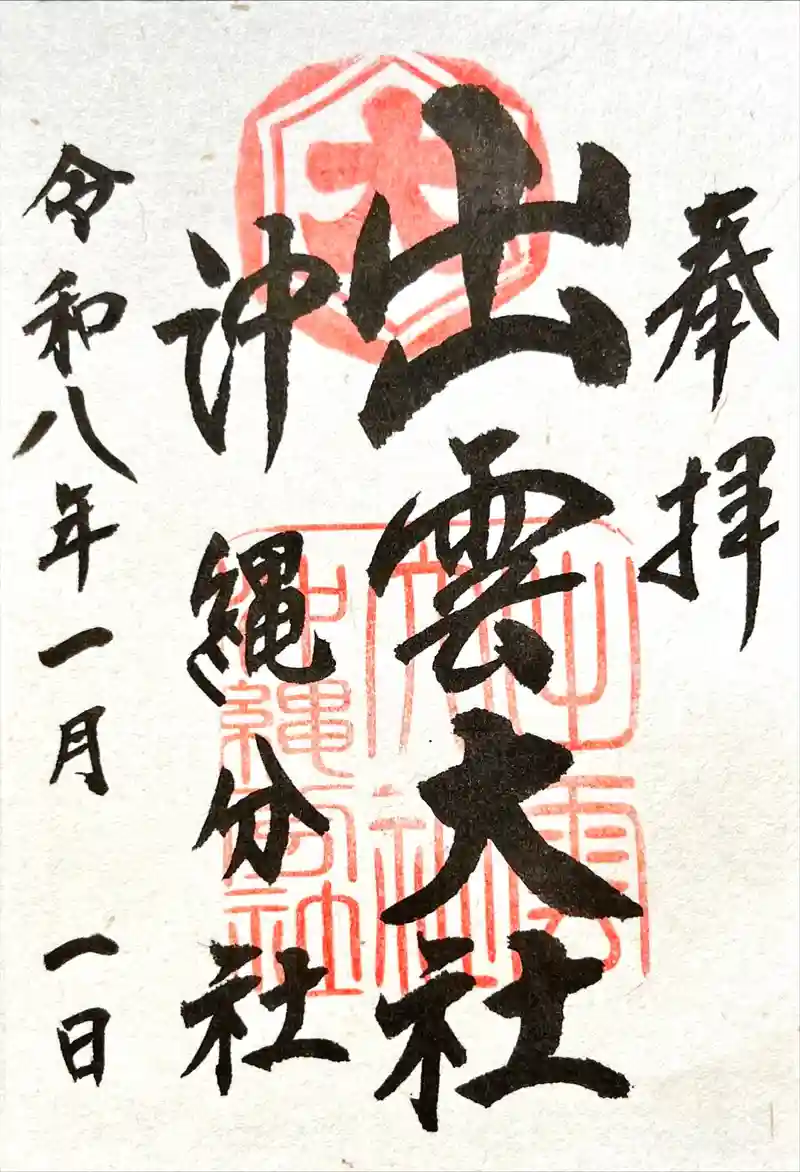 奉拝
出雲大社
沖縄分社
令和八年一月一日
大
出雲
大社
沖縄分社